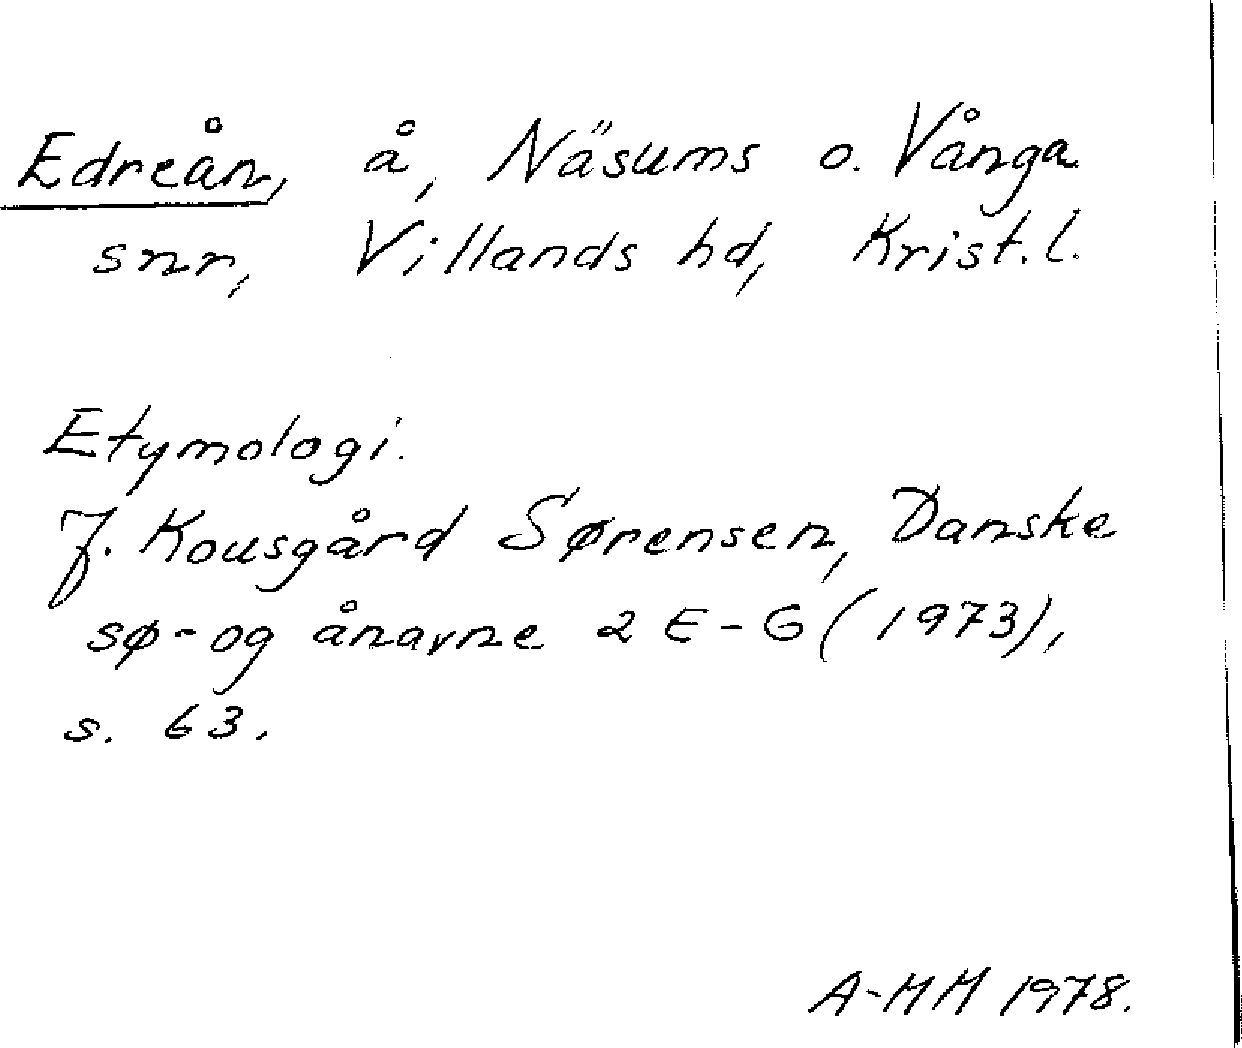 Edreån, å, Näsums o. Vånga
snr, Villands hd, Krist. l.
Etymologi.
J. Kousgård Sørensen, Danske
sø- og ånavne 2 E-G (1973),
s. 63.
A-MM 1978.